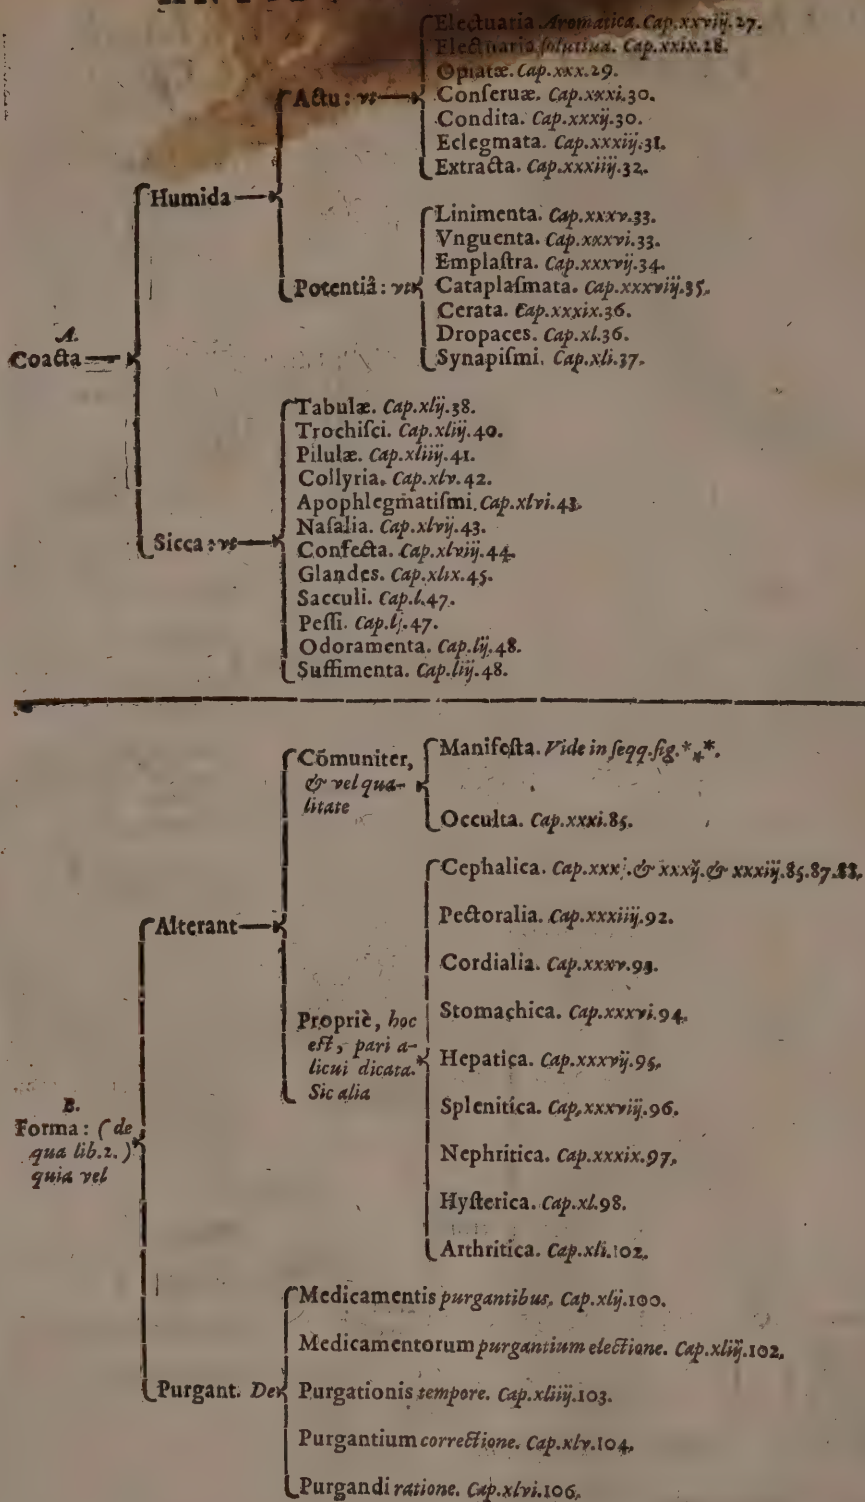 Electuaria Aromatica. Cap.xxviij.27.
Electuaria ſolutiua. Cap.xxix.28.
Opiatæ. Cap.xxx.29.
Actu: vt
Conſeruæ. Cap.xxxi.30.
Condita. Cap.xxxij.30.
Eclegmata. Cap.xxxiij.31.
Extracta. Cap.xxxiiij.32.
Humida
Linimenta. Cap.xxxv.33.
Vnguenta. Cap.xxxvi.33.
Emplaſtra. Cap.xxxvij.34.
Potentiâ: vt
Cataplaſmata. Cap.xxxviij.35.
Cerata. Cap.xxxix.36.
Dropaces. Cap.xl.36.
Synapiſmi. Cap.xli.37.
A.
Coacta
Tabulæ. Cap.xlij.38.
Trochiſci. Cap.xliij.40.
Pilulæ. Cap.xliiij.41.
Collyria. Cap.xlv.42.
Apophlegmatiſmi. Cap.xlvi.43.
Naſalia. Cap.xlvij.43.
Sicca: vt
Confecta. Cap.xlviij.44.
Glandes. Cap.xlix.45.
Sacculi. Cap.l.47.
Peſſi. Cap.lj.47.
Odoramenta. Cap.lij.48.
Suffimenta. Cap.liij.48.
Cōmuniter,
& vel qua-
litate
Manifeſta. Vide in ſeqq. ſig.***.
Occulta. Cap.xxxi.85.
Alterant
Propriè, hoc
eſt, pari a-
licui dicata.
Sic alia
Cephalica. Cap.xxxj.& xxxij.& xxxiij.85.87.88.
Pectoralia. Cap.xxxiiij.92.
Cordialia. Cap.xxxv.93.
Stomachica. Cap.xxxvi.94.
Hepatica. Cap.xxxvij.95.
Splenitica. Cap.xxxviij.96.
Nephritica. Cap.xxxix.97.
Hyſterica. Cap.xl.98.
Arthritica. Cap.xli.102.
B.
Forma: (de
qua lib.2.)
quia vel
Medicamentis purgantibus. Cap.xlij.100.
Medicamentorum purgantium electione. Cap.xliij.102.
Purgant. De
Purgationis tempore. Cap.xliiij.103.
Purgantium correctione. Cap.xlv.104.
Purgandi ratione. Cap.xlvi.106.